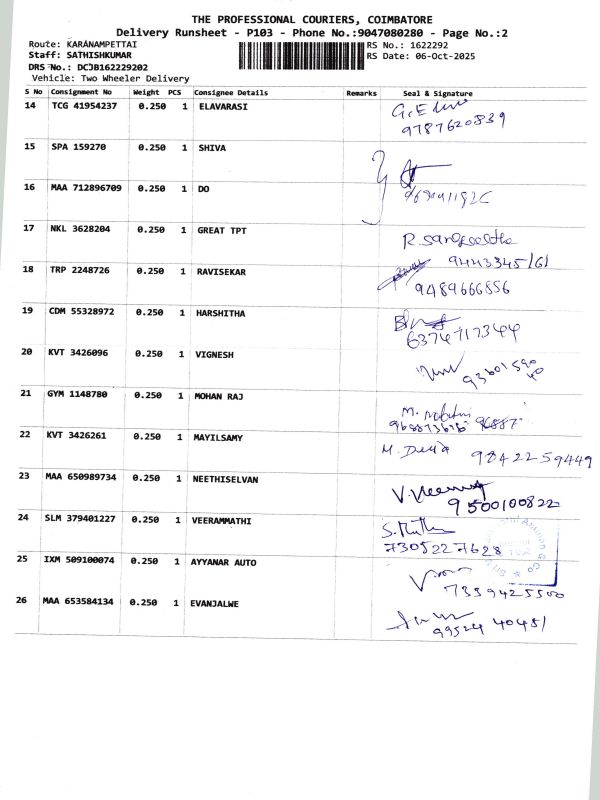 THE PROFESSIONAL COURIERS, COIMBATORE
Delivery Runsheet - P103 - Phone No.:9047080280 - Page No.:2
Route: KARANAMPETTAI
RS No.: 1622292
Staff: SATHISHKUMAR
RS Date: 06-Oct-2025
DRS No.: DCJB162229202
Vehicle: Two Wheeler Delivery
S No Consignment No Weight PCS Consignee Details Remarks Seal & Signature
14 TCG 41954237 0.250 1 ELAVARASI
9787620839
15 SPA 159270 0.250 1 SHIVA
16 MAA 712896709 0.250 1 DO
17 NKL 3628204 0.250 1 GREAT TPT R. Sangeetha
9443345161
18 TRP 2248726 0.250 1 RAVISEKAR
9489666856
19 CDM 55328972 0.250 1 HARSHITHA
6374717344
20 KVT 3426096 0.250 1 VIGNESH
93601590
40
21 GYM 1148780 0.250 1 MOHAN RAJ
22 KVT 3426261 0.250 1 MAYILSAMY
9842259449
23 MAA 650989734 0.250 1 NEETHISELVAN
9500100822
24 SLM 379401227 0.250 1 VEERAMMATHI
7305227628
25 IXM 509100074 0.250 1 AYYANAR AUTO
7339425500
26 MAA 653584134 0.250 1 EVANJALWE
99524 40451